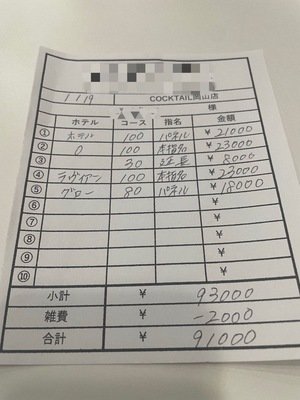 1/19 COCKTAIL岡山店
様
ホテル コース 指名 金額
① ホテル 100 パネル ¥21000
② 〇 100 本指名 ¥23000
③ 30 延長 ¥8000
④ ラヴィアン 100 本指名 ¥23000
⑤ グロー 80 パネル ¥18000
⑥ ¥
⑦ ¥
⑧ ¥
⑨ ¥
⑩ ¥
小計 ¥ 93000
雑費 ¥ -2000
合計 ¥ 91000